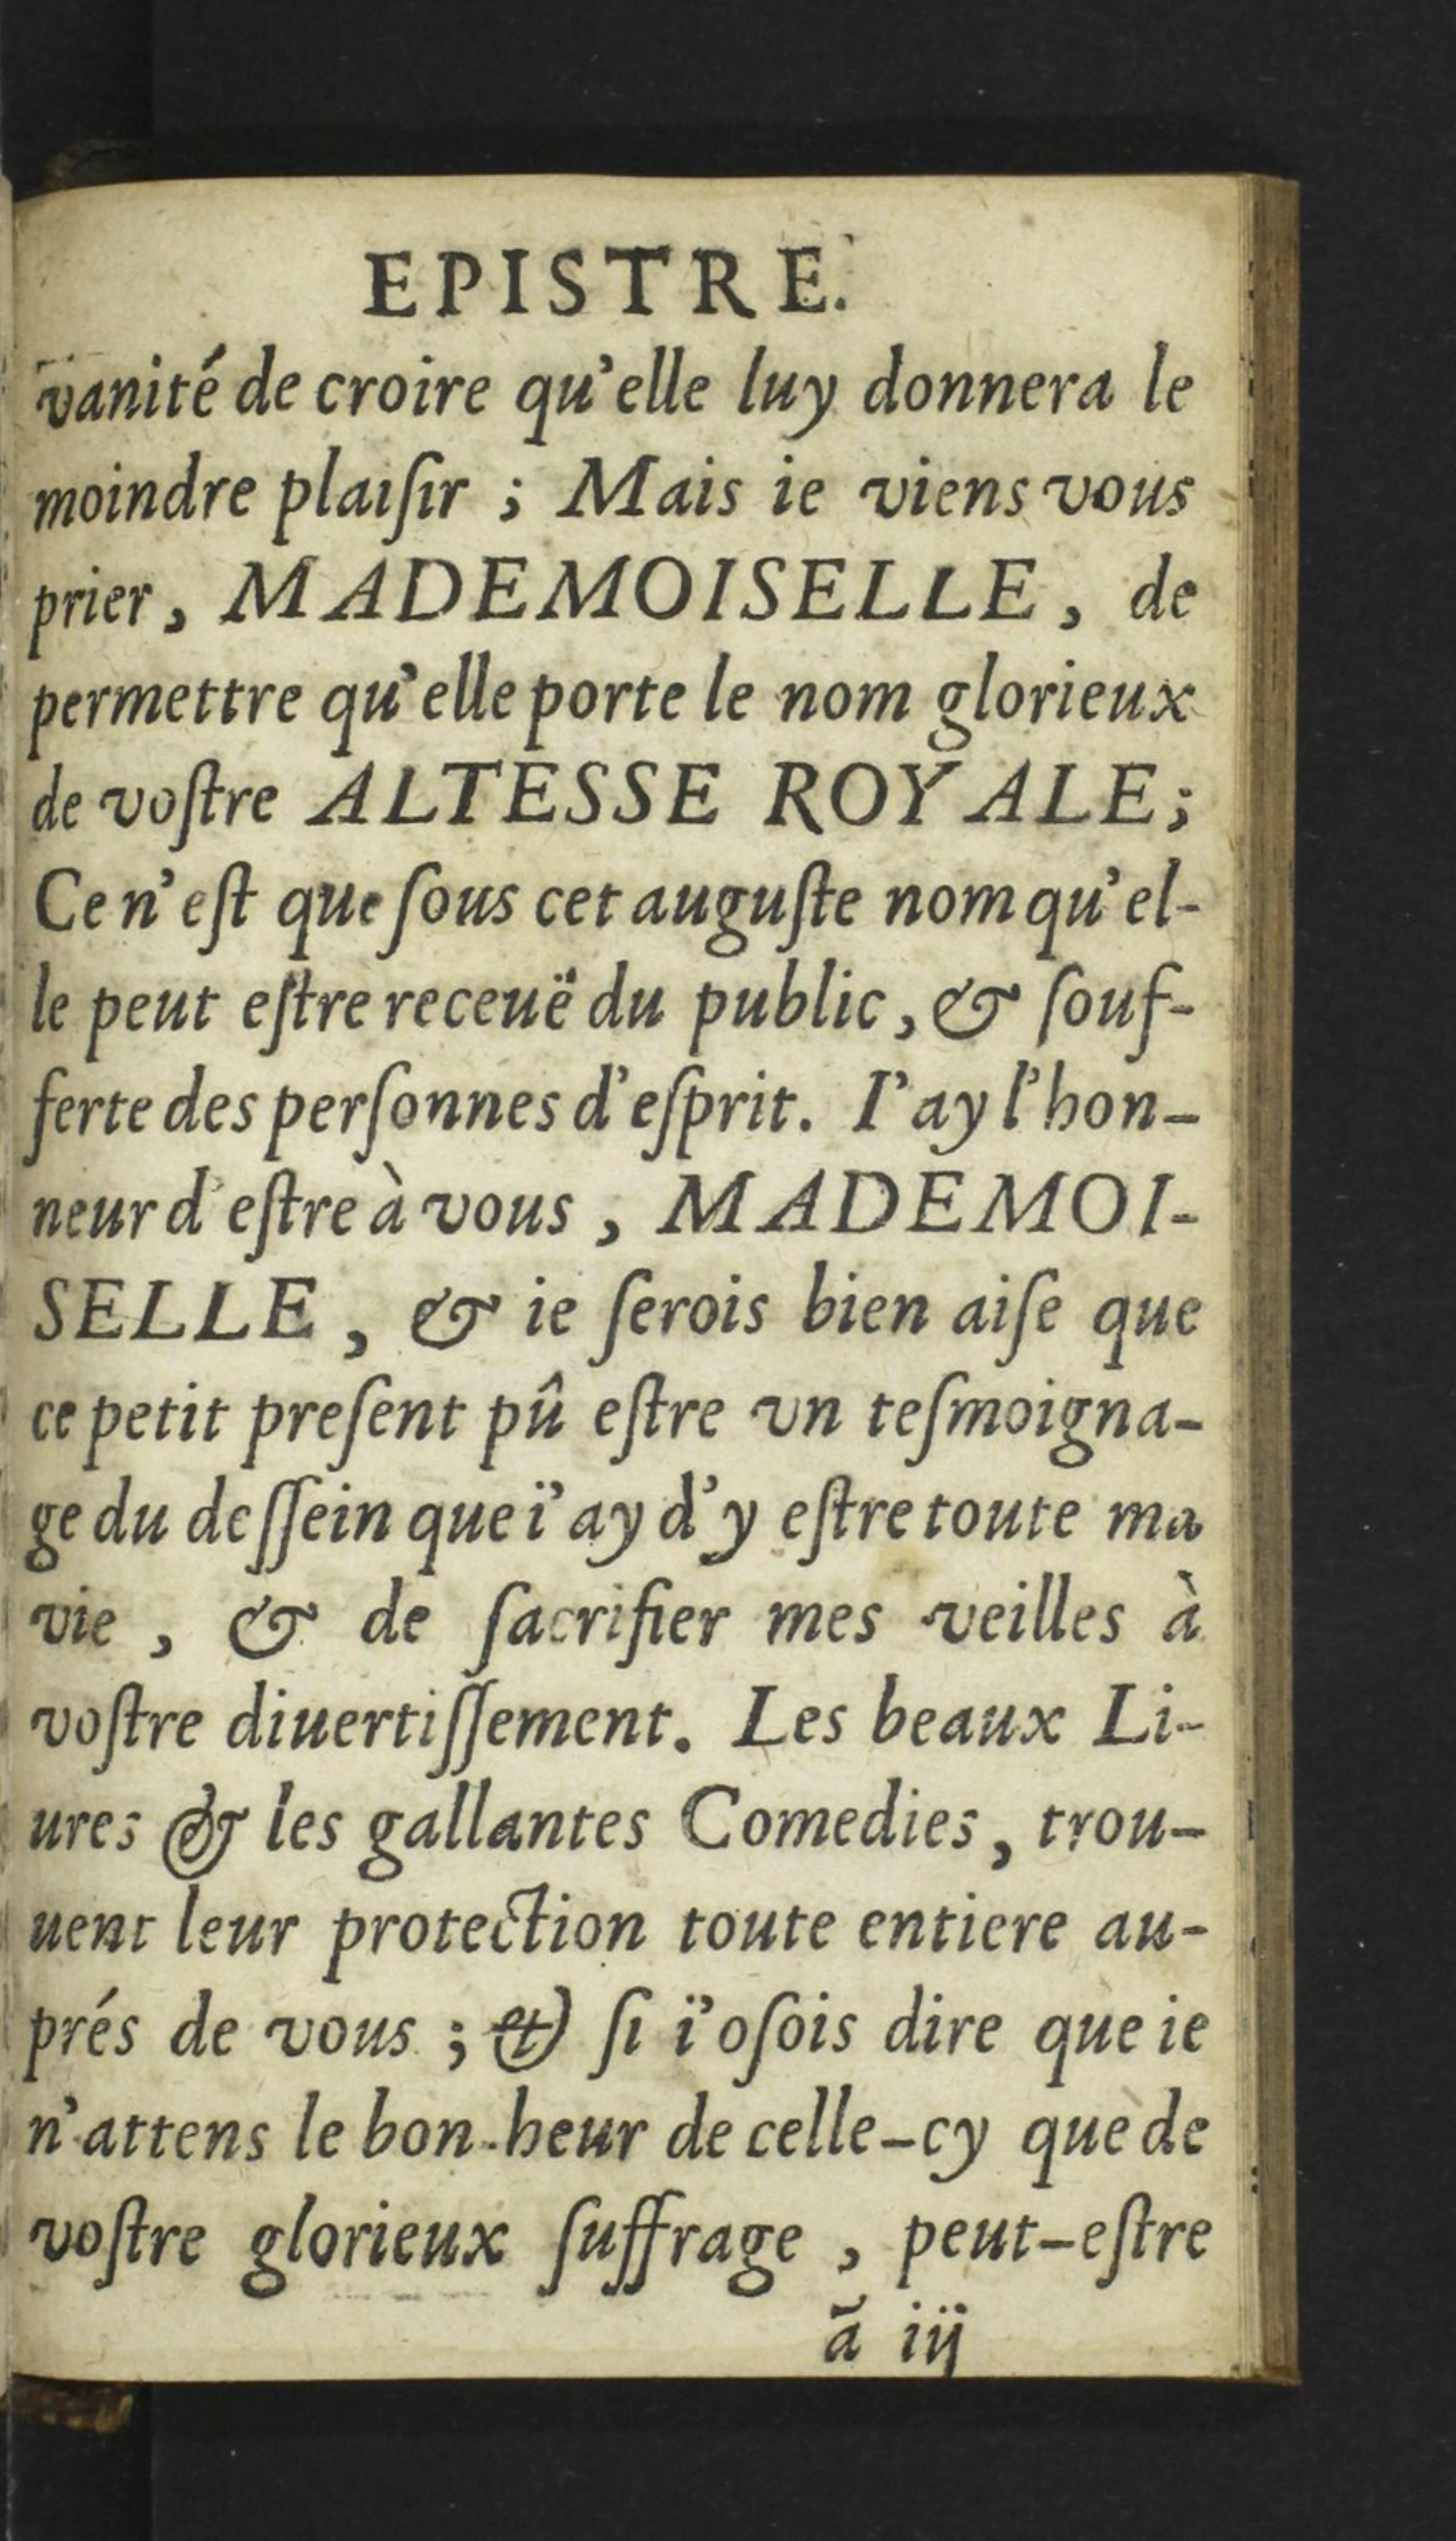 EPISTRE.
vanité de croire qu'elle luy donnera le
moindre plaiſir ; Mais ie viens vous
prier, MADEMOISELLE, de
permettre qu'elle porte le nom glorieux
de voſtre ALTESSE ROYALE;
Ce n'eſt que ſous cet auguſte nom qu'el-
le peut eſtre receuë du public, & ſouf-
ferte des perſonnes d'eſprit. I'ay l'hon-
neur d'eſtre à vous, MADEMOI-
SELLE, & ie ſerois bien aiſe que
ce petit preſent pû eſtre vn teſmoigna-
ge du deſſein que i'ay d'y eſtre toute ma
vie, & de ſacrifier mes veilles à
voſtre diuertiſſement. Les beaux Li-
ures & les gallantes Comedies, trou-
uent leur protection toute entiere au-
prés de vous ; & ſi i'oſois dire que ie
n'attens le bon-heur de celle-cy que de
voſtre glorieux ſuffrage, peut-eſtre
ã iij